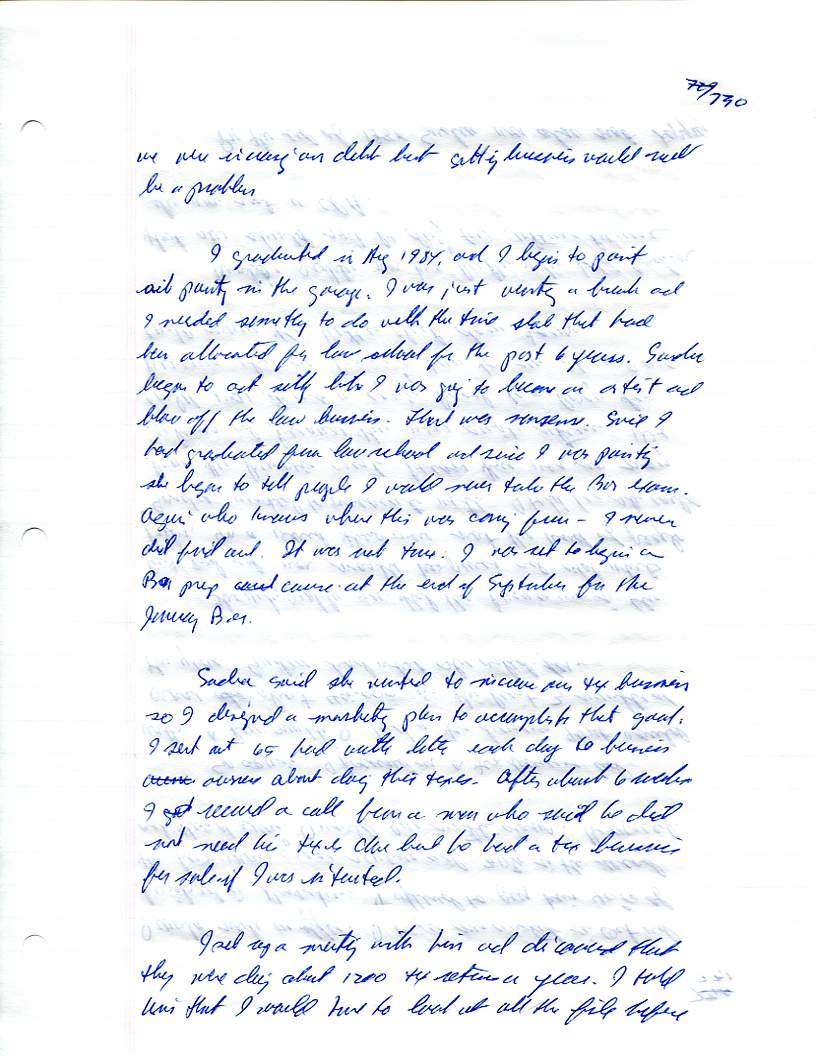 729/730
we were increasing our debt but getting business would not
be a problem
I graduated in Aug 1984, and I began to paint
oil painting in the garage. I was just wanting a break and
I needed something to do with the time slot that had
been allocated for law school for the past 6 years. Sandra
began to act silly like I was going to become an artist and
blow off the law business. That was nonsense. Since I
had graduated from law school and since I was painting
she began to tell people I would never take the Bar exam.
Again who knows where this was coming from - I never
did find out. It was not true. I was set to begin a
Bar prep course at the end of September for the
January Bar.
Sandra said she wanted to increase our tax business
so I designed a marketing plan to accomplish that goal.
I sent out 65 hand letter each day to business
owners about doing their taxes. After about 6 weeks
I got received a call from a man who said he did
not need his taxes done but he had a tax business
for sale if I was interested.
I set up a meeting with him and discovered that
they were doing about 1200 tax return a year. I told
him that I would have to look at all the file before